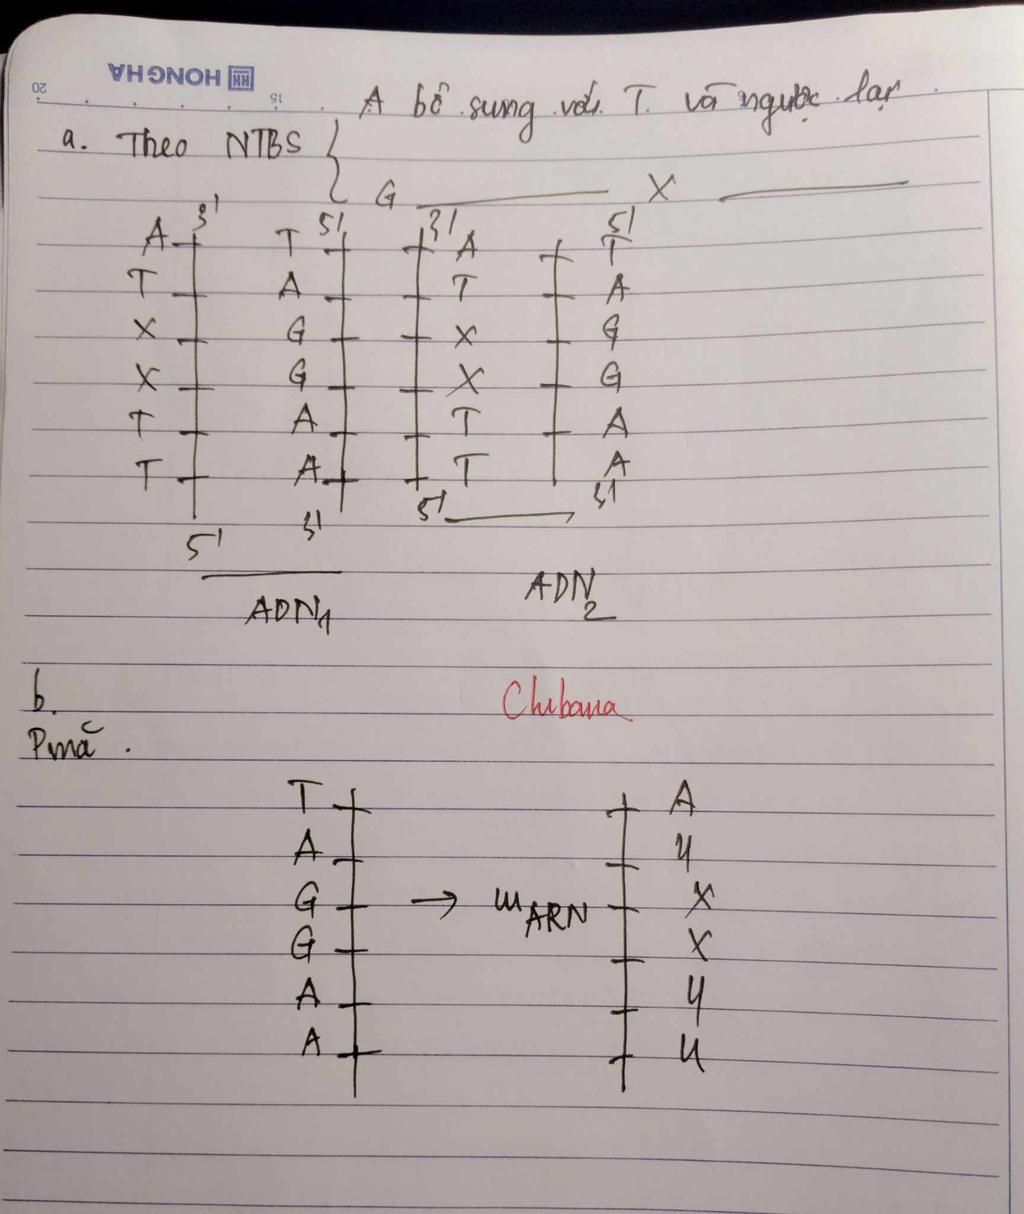 HONG HA
20 15
A bổ sung với T. và ngược lại
a. Theo NTBS {
G ——— X ———
3' 5' 3' 5'
A T A T
T A T A
X G X G
X G X G
T A T A
T A T A
5' 3' 5' 3'
ADN1 ADN2
b. Chibana
Pmã .
T A
A U
G → mARN X
G X
A U
A U